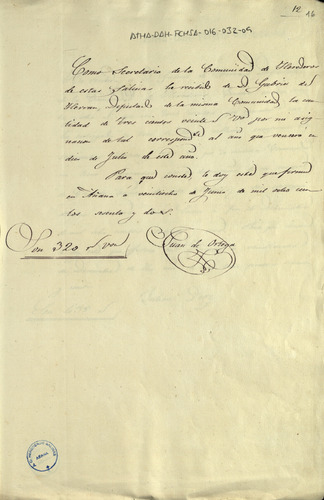 12
16
ATHA-DAH-FCHSA-016-032-05
Como Secretario de la Comunidad de Herederos
de estas Salinas he recibido de D. Gabriel de
Herran Diputado de la misma Comunidad la can
tidad de tres cientos veinte r.s v.on por mi asig
nacion de tal correspond.te al año que vencera en
dies de Julio de este año.
Para que conste le doy este que firmo
en Añana à veintiocho de Junio de mil ocho cien
tos sesenta y dos.
Son 320 r.s von
Juan de Ortega